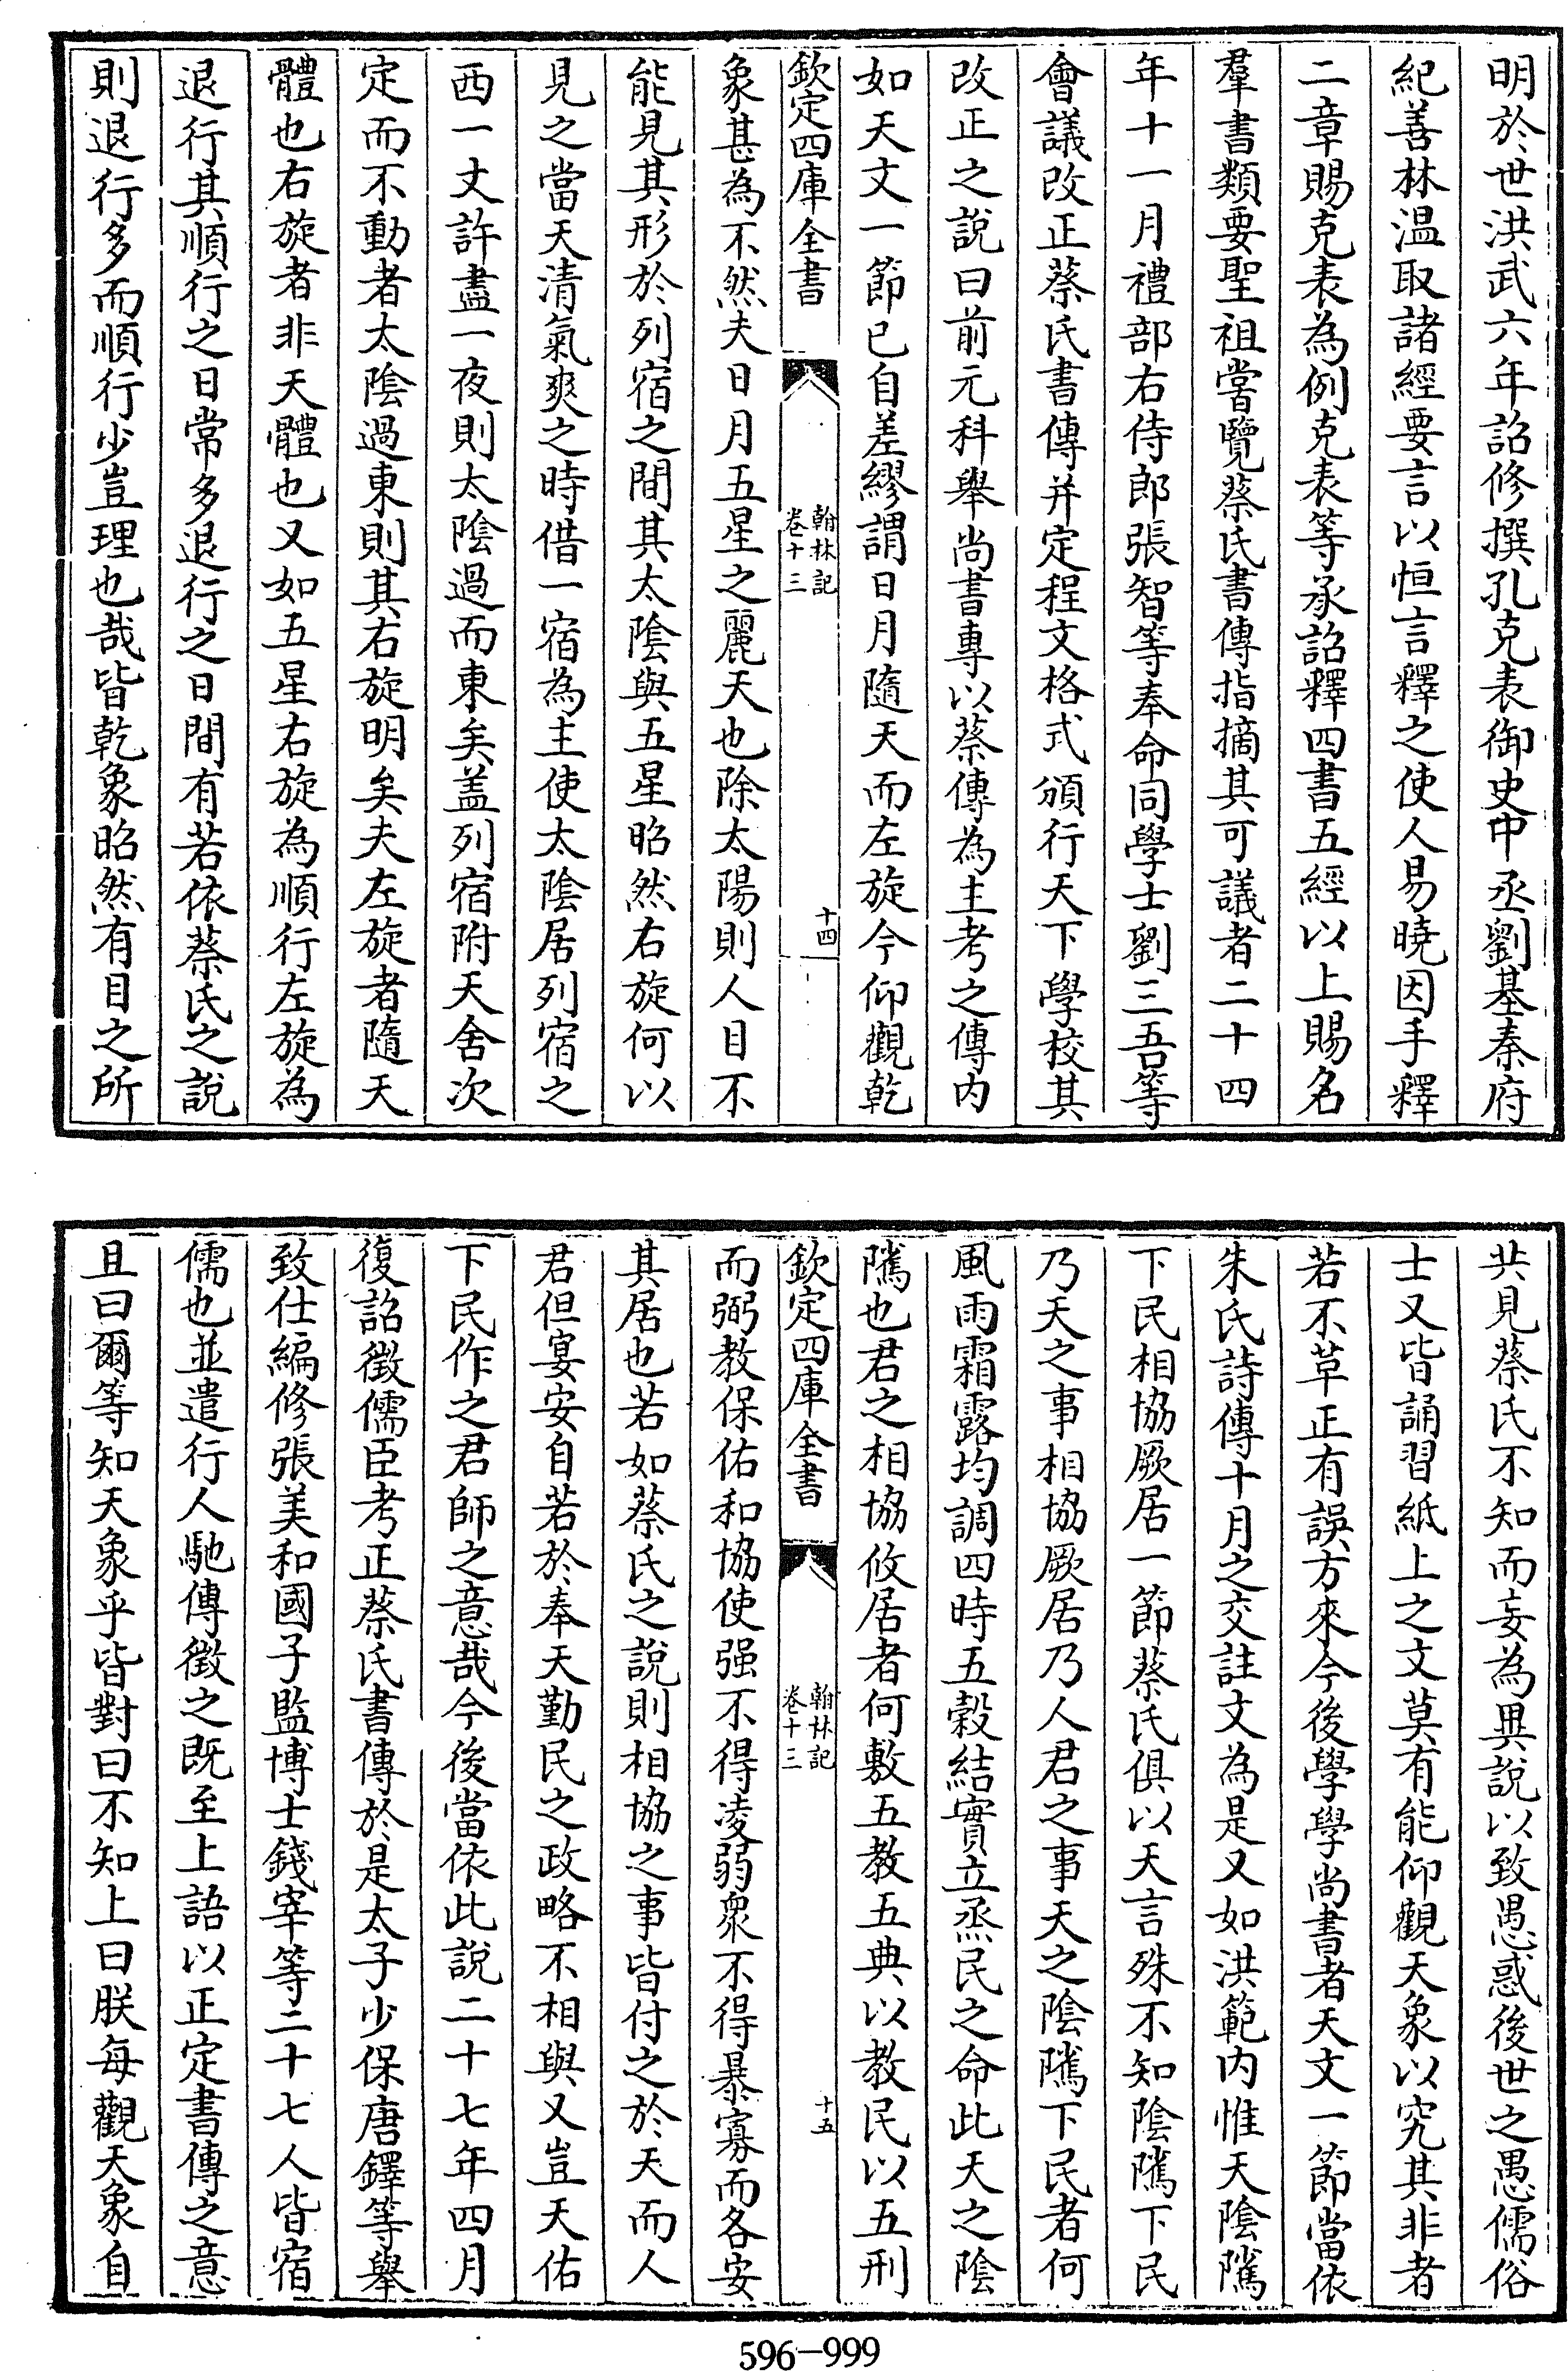 明於世洪武六年詔修撰孔克表御史中丞劉基秦府
紀善林温取諸經要言以恒言釋之使人易曉因手釋
二章賜克表為例克表等承詔釋四書五經以上賜名
羣書類要聖祖嘗覽蔡氏書傳指摘其可議者二十四
年十一月禮部右侍郎張智等奉命同學士劉三吾等
會議改正蔡氏書傳并定程文格式頒行天下學校其
改正之說曰前元科舉尚書專以蔡傳為主考之傳内
如天文一節已自差繆謂日月隨天而左旋今仰觀乾
欽定四庫全書
翰林記
卷十三
十四
象甚為不然夫日月五星之麗天也除太陽則人目不
能見其形於列宿之間其太陰與五星昭然右旋何以
見之當天清氣爽之時借一宿為主使太陰居列宿之
西一丈許盡一夜則太陰過而東矣盖列宿附天舍次
定而不動者太陰過東則其右旋明矣夫左旋者隨天
體也右旋者非天體也又如五星右旋為順行左旋為
退行其順行之日常多退行之日間有若依蔡氏之說
則退行多而順行少豈理也哉皆乾象昭然有目之所
共見蔡氏不知而妄為異說以致愚惑後世之愚儒俗
士又皆誦習紙上之文莫有能仰觀天象以究其非者
若不草正有誤方來今後學學尚書者天文一節當依
朱氏詩傳十月之交註文為是又如洪範内惟天陰隲
下民相協厥居一節蔡氏俱以天言殊不知陰隲下民
乃天之事相協厥居乃人君之事天之陰隲下民者何
風雨霜露均調四時五榖結實立烝民之命此天之陰
隲也君之相協攸居者何敷五教五典以教民以五刑
欽定四庫全書
翰林記
卷十三
十五
而弼教保佑和協使强不得凌弱衆不得暴寡而各安
其居也若如蔡氏之說則相協之事皆付之於天而人
君但宴安自若於奉天勤民之政略不相與又豈天佑
下民作之君師之意哉今後當依此說二十七年四月
復詔徵儒臣考正蔡氏書傳於是太子少保唐鐸等舉
致仕編修張美和國子監博士錢宰等二十七人皆宿
儒也並遣行人馳傳徵之既至上語以正定書傳之意
且曰爾等知天象乎皆對曰不知上曰朕每觀天象自
596-999